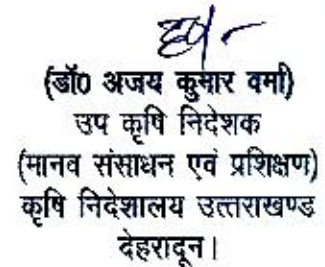 (डॉ0 अजय कुमार वर्मा)
उप कृषि निदेशक
(मानव संसाधन एवं प्रशिक्षण)
कृषि निदेशालय उत्तराखण्ड
देहरादून।